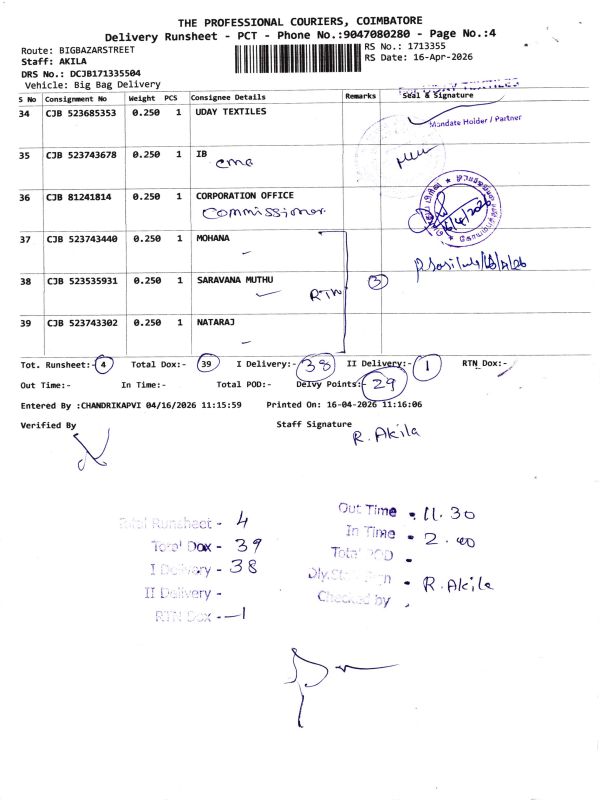 THE PROFESSIONAL COURIERS, COIMBATORE
Delivery Runsheet - PCT - Phone No.:9047080280 - Page No.:4
Route: BIGBAZARSTREET
RS No.: 1713355
Staff: AKILA
RS Date: 16-Apr-2026
DRS No.: DCJB171335504
Vehicle: Big Bag Delivery
S No Consignment No Weight PCS Consignee Details Remarks Seal & Signature
34 CJB 523685353 0.250 1 UDAY TEXTILES
Mandate Holder / Partner
35 CJB 523743678 0.250 1 IB
cmc
36 CJB 81241814 0.250 1 CORPORATION OFFICE
Commissioner
37 CJB 523743440 0.250 1 MOHANA
38 CJB 523535931 0.250 1 SARAVANA MUTHU
RTN 3
39 CJB 523743302 0.250 1 NATARAJ
Tot. Runsheet:- 4 Total Dox:- 39 I Delivery:- 38 II Delivery:- 1 RTN Dox:-
Out Time:- In Time:- Total POD:- Delvy Points:- 29
Entered By :CHANDRIKAPVI 04/16/2026 11:15:59 Printed On: 16-04-2026 11:16:06
Verified By Staff Signature
R. Akila
Total Runsheet - 4
Total Dox - 39
I Delivery - 38
II Delivery -
RTN Dox - 1
Out Time - 11.30
In Time - 2.00
Total POD -
R. Akila
Checked by